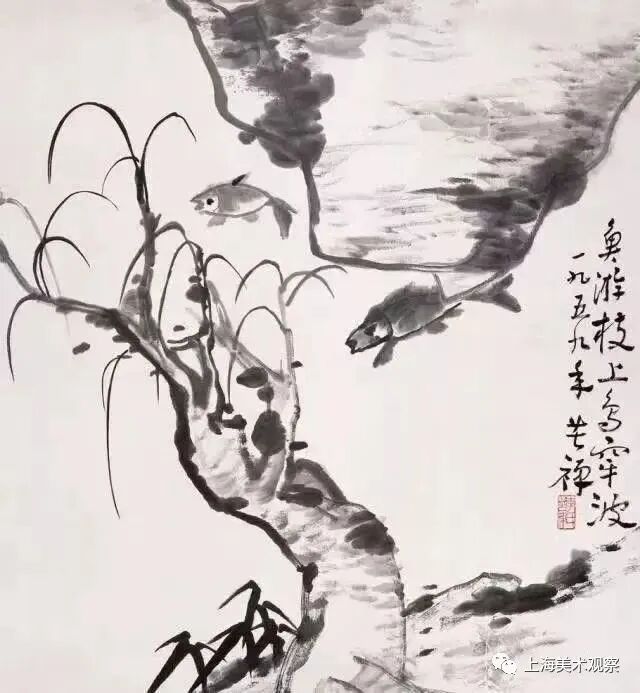 魚游枝上鸟穿波
一九五九年 苦禅
上海美术观察